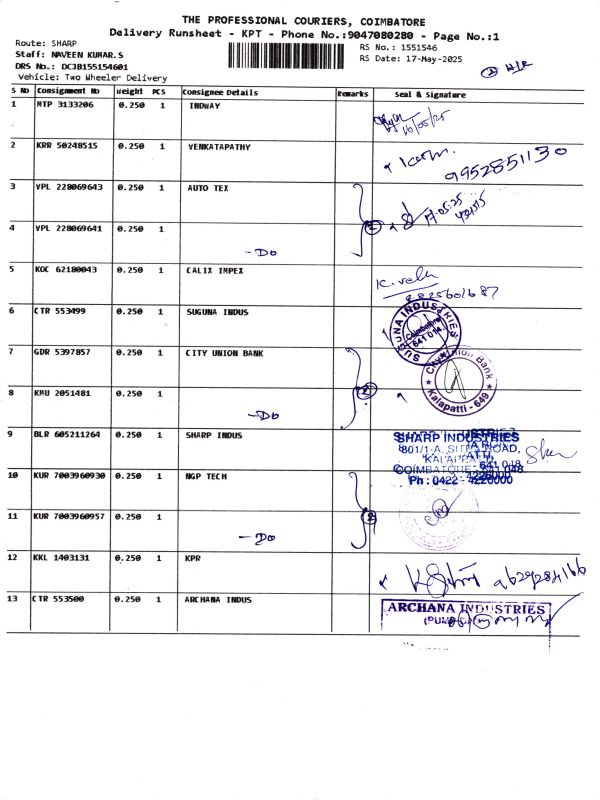 THE PROFESSIONAL COURIERS, COIMBATORE
Delivery Runsheet - KPT - Phone No.:9047080280 - Page No.:1
Route: SHARP
RS No.: 1551546
Staff: NAVEEN KUMAR.S
RS Date: 17-May-2025
DRS No.: DCJB155154601
Vehicle: Two Wheeler Delivery
S No Consignment No Weight PCS Consignee Details Remarks Seal & Signature
1 MTP 3133206 0.250 1 INDWAY
2 KRR 50248515 0.250 1 VENKATAPATHY
9952851130
3 VPL 228069643 0.250 1 AUTO TEX
17-05-25
4 VPL 228069641 0.250 1
- Do
2
5 KOC 62180043 0.250 1 CALIX IMPEX
6 CTR 553499 0.250 1 SUGUNA INDUS
SUGUNA INDUSTRIES
Coimbatore
641 014
7 GDR 5397857 0.250 1 CITY UNION BANK
City Union Bank
Kalapatti - 649
8 KMU 2051481 0.250 1
- Do
2
9 BLR 605211264 0.250 1 SHARP INDUS
SHARP INDUSTRIES
801/1-A, SITRA ROAD,
KALAPATTI,
COIMBATORE - 641 048
Ph : 0422 - 4226000
10 KUR 7003960930 0.250 1 NGP TECH
11 KUR 7003960957 0.250 1
- Do
2
12 KKL 1403131 0.250 1 KPR
9629284166
13 CTR 553500 0.250 1 ARCHANA INDUS
ARCHANA INDUSTRIES